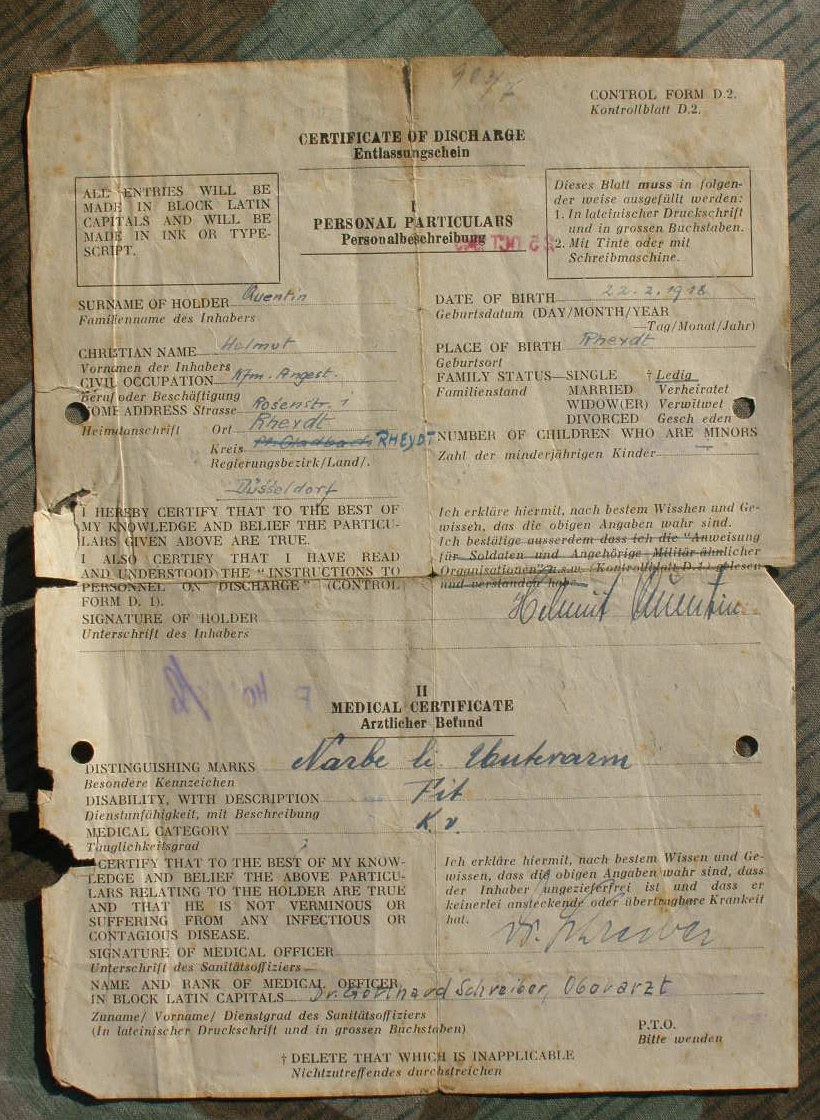 CONTROL FORM D.2.
Kontrollblatt D.2.
CERTIFICATE OF DISCHARGE
Entlassungschein
ALL ENTRIES WILL BE
MADE IN BLOCK LATIN
CAPITALS AND WILL BE
MADE IN INK OR TYPE-
SCRIPT.
I
PERSONAL PARTICULARS
Personalbeschreibung
25 OCT
Dieses Blatt muss in folgen-
der weise ausgefüllt werden:
1. In lateinischer Druckschrift
und in grossen Buchstaben.
2. Mit Tinte oder mit
Schreibmaschine.
SURNAME OF HOLDER Quentin
Familienname des Inhabers
CHRISTIAN NAME Helmut
Vornamen der Inhabers
CIVIL OCCUPATION Kfm. Angest.
Beruf oder Beschäftigung
HOME ADDRESS Strasse Rosenstr. 1
Heimatanschrift Ort Rheydt
Kreis M. Gladbach RHEYDT
Regierungsbezirk/Land/.
Düsseldorf
DATE OF BIRTH 22.2.1918
Geburtsdatum (DAY/MONTH/YEAR
—Tag/Monat/Jahr)
PLACE OF BIRTH Rheydt
Geburtsort
FAMILY STATUS—SINGLE † Ledig
Familienstand MARRIED Verheiratet
WIDOW(ER) Verwitwet
DIVORCED Gesch eden
NUMBER OF CHILDREN WHO ARE MINORS
Zahl der minderjährigen Kinder —
I HEREBY CERTIFY THAT TO THE BEST OF
MY KNOWLEDGE AND BELIEF THE PARTICU-
LARS GIVEN ABOVE ARE TRUE.
I ALSO CERTIFY THAT I HAVE READ
AND UNDERSTOOD THE "INSTRUCTIONS TO
PERSONNEL ON DISCHARGE" (CONTROL
FORM D. 1).
SIGNATURE OF HOLDER
Unterschrift des Inhabers
Ich erkläre hiermit, nach bestem Wisshen und Ge-
wissen, das die obigen Angaben wahr sind.
Ich bestätige ausserdem dass ich die "Anweisung
für Soldaten und Angehörige Militär-ähnlicher
Organisationen" u.s.w. (Kontrollblatt D.1) gelesen
und verstanden habe.
Helmut Quentin
II
MEDICAL CERTIFICATE
Arztlicher Befund
DISTINGUISHING MARKS Narbe li Unterarm
Besondere Kennzeichen
DISABILITY, WITH DESCRIPTION Fit
Dienstunfähigkeit, mit Beschreibung
MEDICAL CATEGORY K.v.
Tauglichkeitsgrad
I CERTIFY THAT TO THE BEST OF MY KNOW-
LEDGE AND BELIEF THE ABOVE PARTICU-
LARS RELATING TO THE HOLDER ARE TRUE
AND THAT HE IS NOT VERMINOUS OR
SUFFERING FROM ANY INFECTIOUS OR
CONTAGIOUS DISEASE.
SIGNATURE OF MEDICAL OFFICER
Unterschrift des Sanitätsoffiziers
Ich erkläre hiermit, nach bestem Wissen und Ge-
wissen, dass die obigen Angaben wahr sind, dass
der Inhaber ungezieferfrei ist und dass er
keinerlei ansteckende oder übertragbare Krankeit
hat.
Dr. Schreiber
NAME AND RANK OF MEDICAL OFFICER
IN BLOCK LATIN CAPITALS Dr. Gotthard Schreiber, Oberarzt
Zuname/ Vorname/ Dienstgrad des Sanitätsoffiziers
(In lateinischer Druckschrift und in grossen Buchstaben)
P.T.O.
Bitte wenden
† DELETE THAT WHICH IS INAPPLICABLE
Nichtzutreffendes durchstreichen